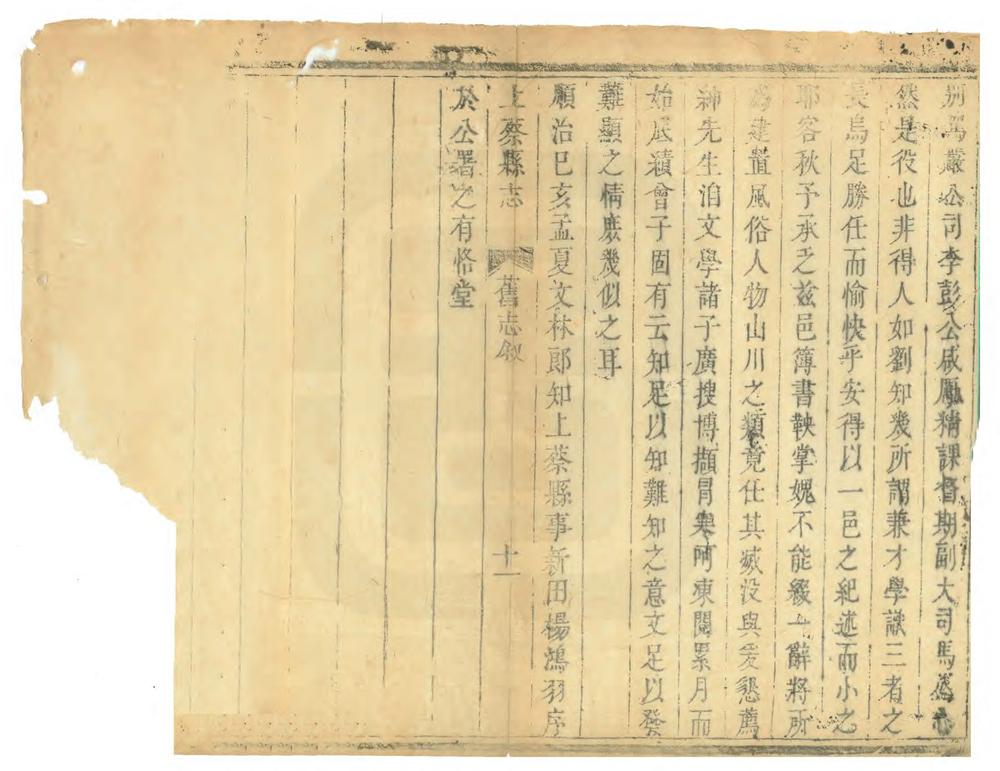 嚴公司李彭公咸厪精課督期副大司馬
然是役也非得人如劉知幾所謂兼才學識三者之
長烏足勝任而愉快乎安得以一邑之紀述而小之
耶客秋予承乏茲邑簿書鞅掌媿不能綴一辭將所
為建置風俗人物山川之類竟任其滅没與爰懇薦
紳先生洎文學諸子廣搜博擷冒寒呵凍閱累月而
始底績曾子固有云知足以知難知之意文足以發
難顯之情庶幾似之耳
順治己亥孟夏文林郎知上蔡縣事新田楊鴻羽序
上蔡縣志 舊志敘 十一
於公署之有恪堂